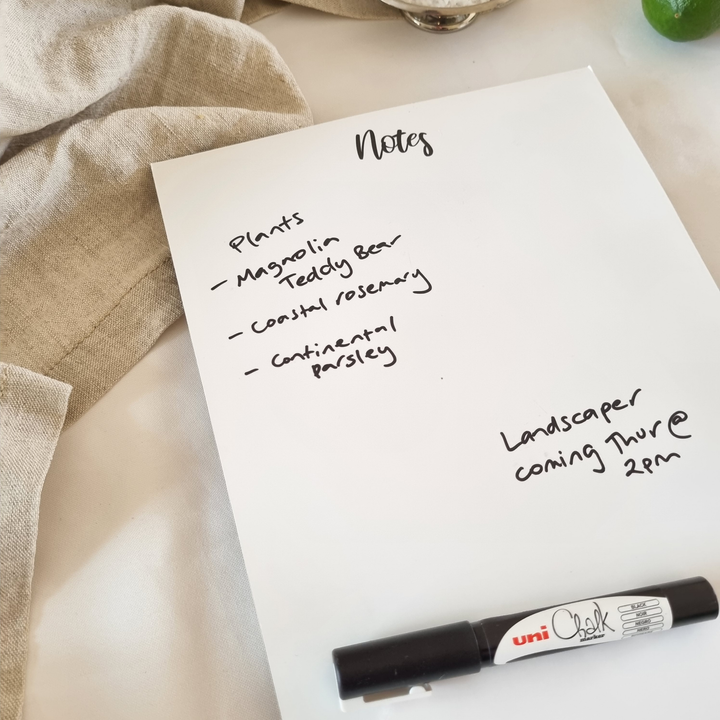 Notes
Plants
- Magnolia
Teddy Bear
- Coastal rosemary
- Continental
parsley
Landscaper
coming Thur @
2pm
uni Chalk
marker
BLACK
NOIR
NEGRO